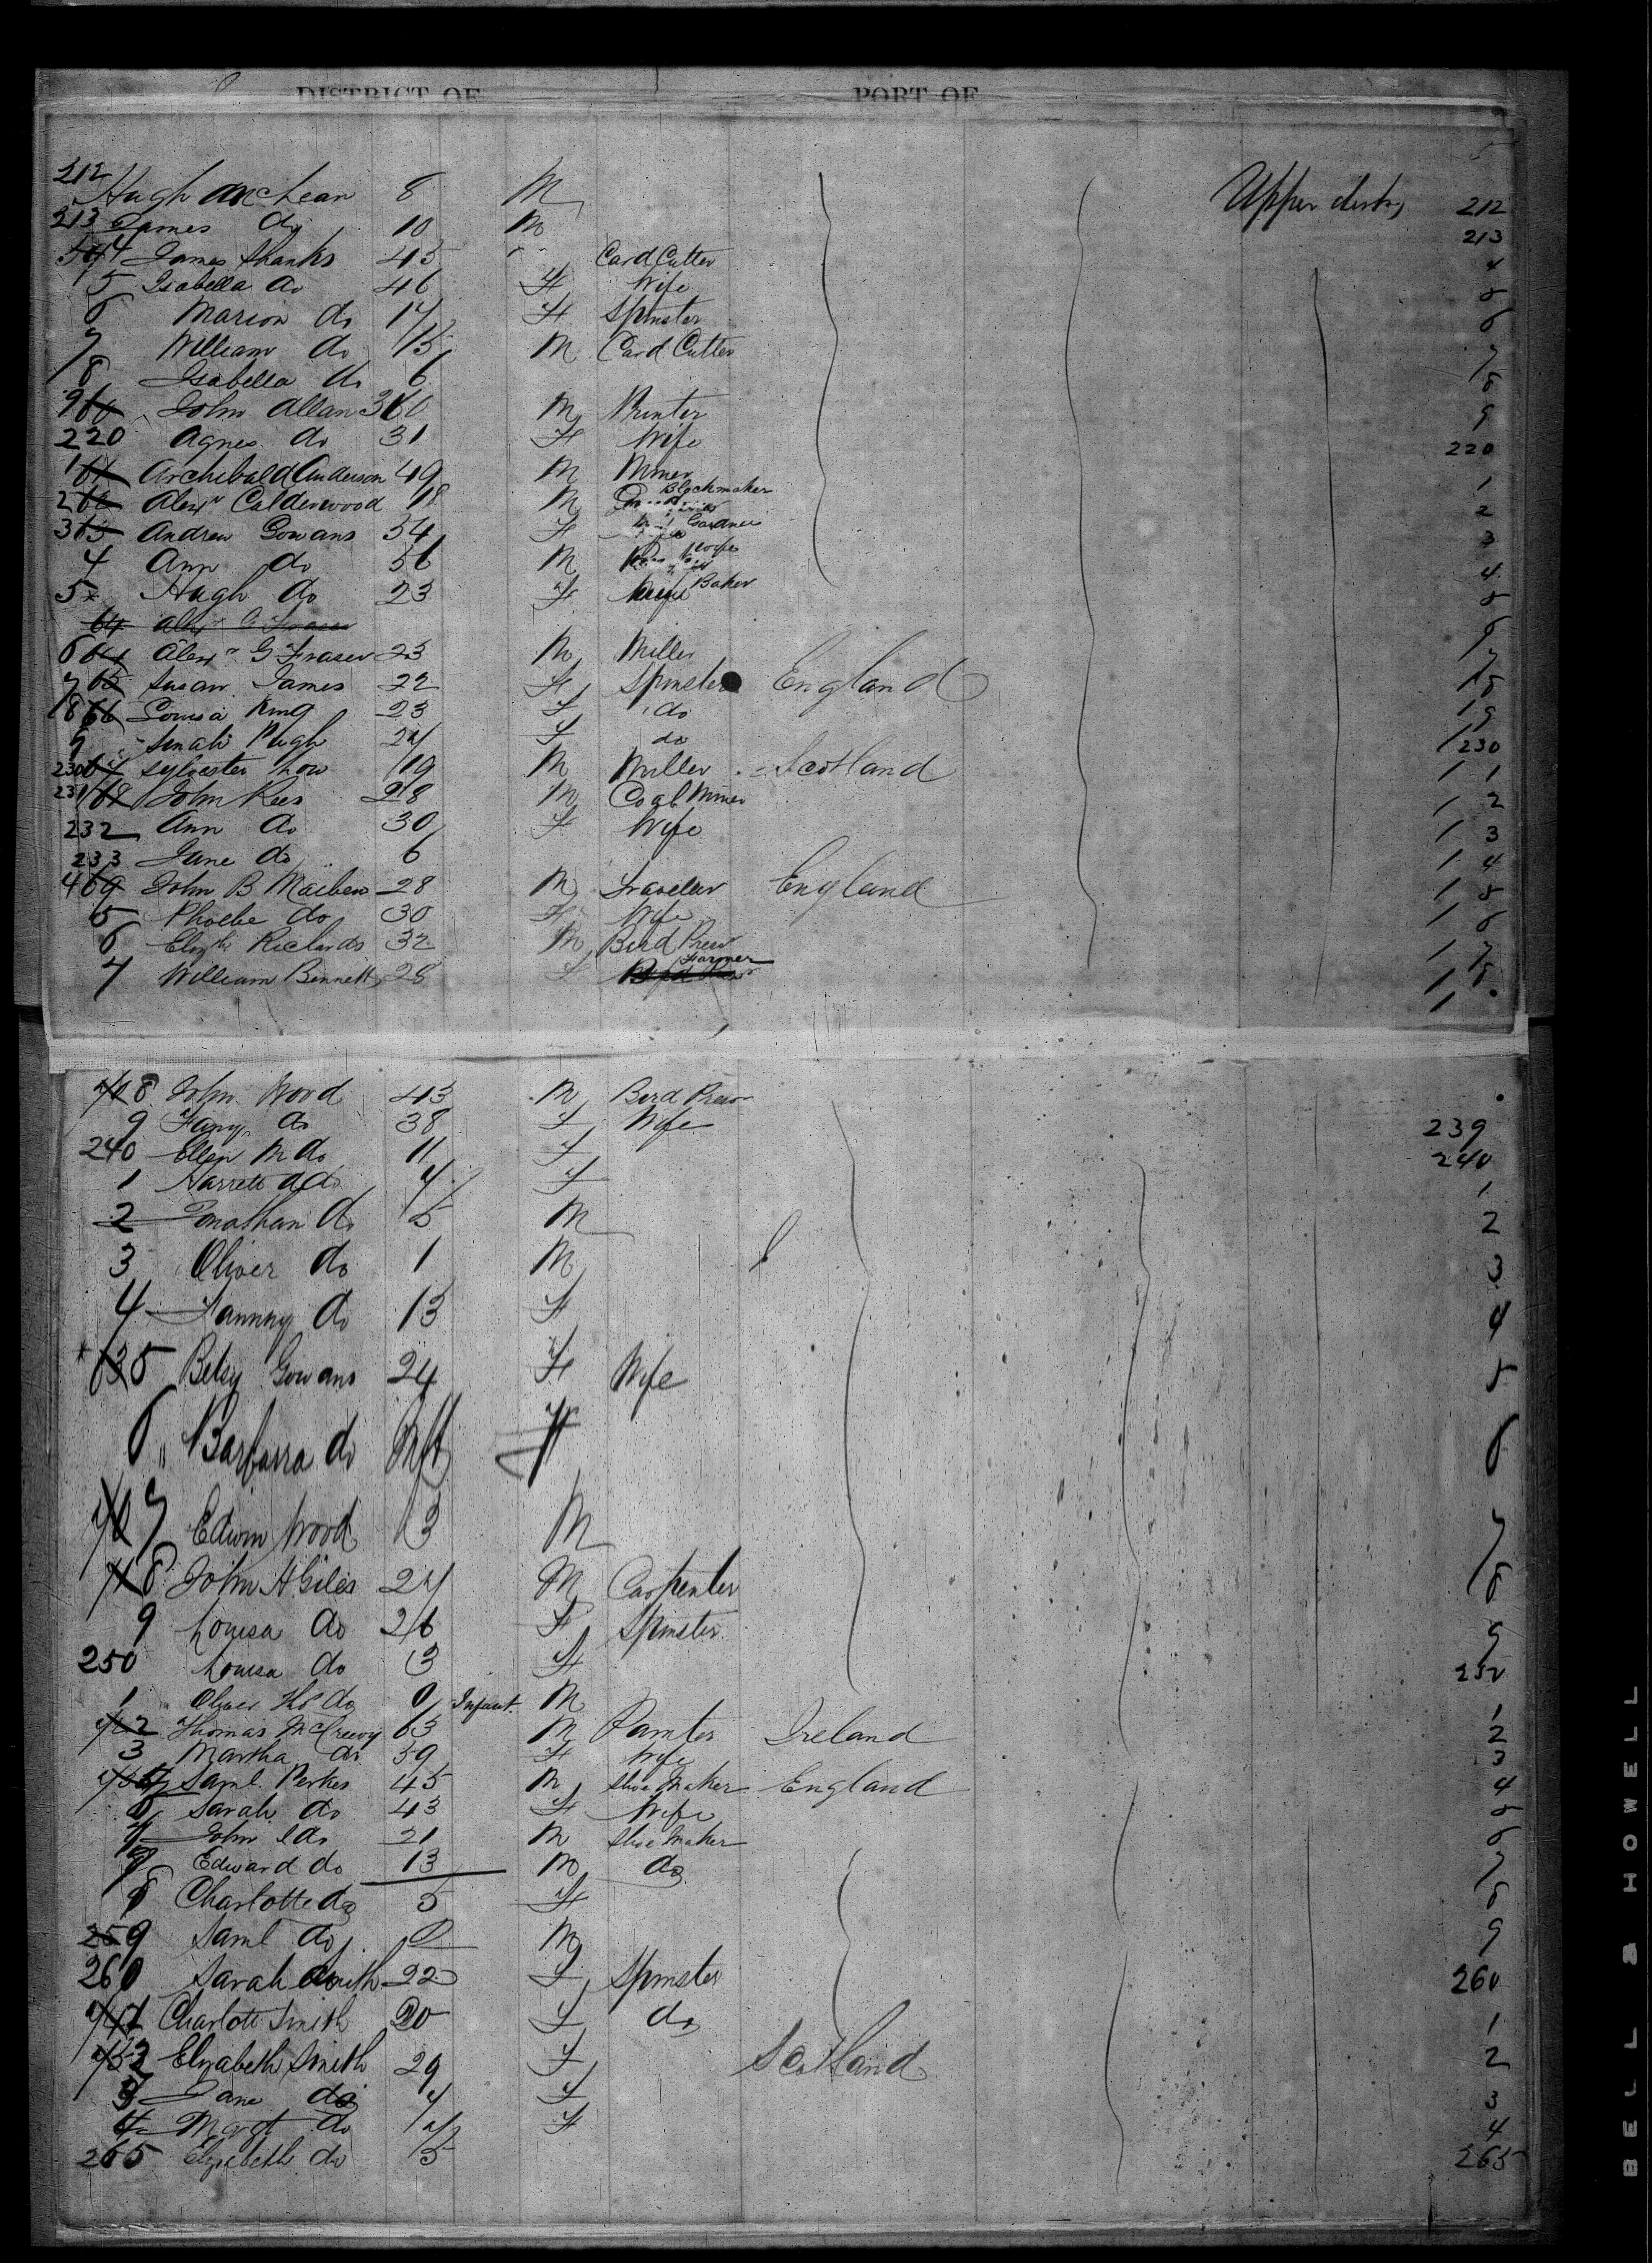 DISTRICT OF PORT OF
212 Hugh McLean 8 M Upper deck 212
213 James do 10 M 213
4 James Shanks 45 Card Cutter 4
5 Isabella do 46 F Wife 5
6 Marion do 17 F Spinster 6
7 William do 15 M Card Cutter 7
8 Isabella do 6 8
9 John Allan 30 M Printer 9
220 Agnes do 31 F Wife 220
1 Archibald Anderson 49 M Miner 1
2 Alexr Calderwood 18 M Blockmaker 2
3 Andrew Gowans 54 F Gardner 3
4 Ann do 56 M Wife 4
5 Hugh do 23 F Baker 5
64 Alexr G Fraser
6 64 Alexr G Fraser 23 M Miller 6
7 65 Susan James 22 F Spinster England 7
8 66 Louisa King 23 F do 8
9 Sinah Pugh 24 F do 9
230 67 Sylvester Low 19 M Miller Scotland 230
231 68 John Rees 28 M Coal Miner 1
232 Ann do 30 F Wife 2
233 Jane do 6 3
4 69 John B Maiben 28 M Traveler England 4
5 Phoebe do 30 F Wife 5
6 Elizth Richards 32 M Bird Preser 6
7 William Bennett 28 F Farmer 7
8 John Wood 43 M Bird Preser
9 Fany do 38 F Wife 239
240 Ellen M do 11 F 240
1 Harrett A do 7 F 1
2 Jonathan do 5 M 2
3 Oliver do 1 M 3
4 Fannny do 13 F 4
63 5 Betsy Gowans 24 F Wife 5
6 " Barbara do Inft F 6
70 7 Edwin Wood 13 M 7
71 8 John H Giles 27 M Carpenter 8
9 Louisa do 26 F Spinster 9
250 Louisa do 3 F 250
1 Oliver do 0 Infant. M 1
72 2 Thomas McCreevy 63 M Painter Ireland 2
3 Martha do 59 F Wife 3
Saml. Perkes 45 M Shoe Maker England 4
Sarah do 43 F Wife 5
John do 21 M Shoe Maker 6
Edward do 13 M do 7
8 Charlotte do 5 F 8
259 Saml do M 9
260 Sarah Smith 22 F Spinster 260
1 Charlott Smith 20 F do 1
2 Elizabeth Smith 29 F Scotland 2
3 Jane do 7 F 3
4 Margt do F 4
265 Elizabeth do 5 265
BELL & HOWELL